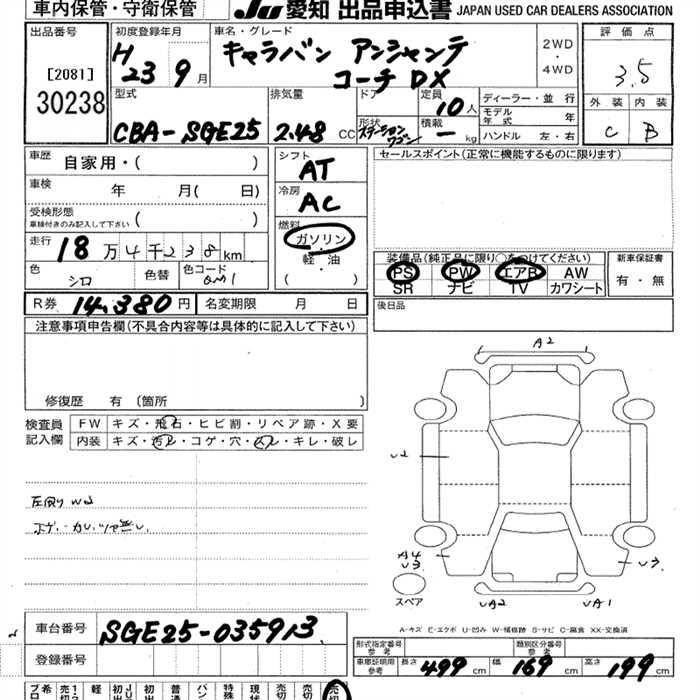 車内保管・守衛保管
JU 愛知 出品申込書 JAPAN USED CAR DEALERS ASSOCIATION
出品番号
[2081]
30238
初度登録年月
H 23 9 月
車名・グレード
キャラバン アンシャンテ
コーチ DX
2WD
・
4WD
評価点
3.5
外装 内装
C B
型式
CBA-SGE25
排気量
2.48 CC
ドア
形状
ステーションワゴン
定員
10 人
積載
ー kg
ディーラー・並行
モデル年式 年
ハンドル 左・右
車歴 自家用・( )
車検 年 月( 日)
受検形態
車検付きのみ記入して下さい ( )
走行 18 万 4 千 238 km
色 シロ 色替 色コード QM1
シフト
AT
冷房
AC
燃料
ガソリン
軽・油
( )
セールスポイント(正常に機能するものに限ります)
装備品(純正品に限り○をつけてください)
PS PW エアB AW
SR ナビ TV カワシート
新車保証書
有・無
R券 14,380 円 名変期限 月 日
後日品
注意事項申告欄(不具合内容等は具体的に記入して下さい)
修復歴 有 (箇所 )
検査員記入欄
FW キズ・飛石・ヒビ割・リペア跡・X要
内装 キズ・汚レ・コゲ・穴・スレ・キレ・破レ
A2
U2
A4
U3
U3
UA2
UA1
スペア
A-キズ E-エクボ U-凹み W-補修跡 S-サビ C-腐食 XX-交換済
車台番号 SGE25-035913
登録番号
形式指定番号 参考
類別区分番号 参考
車庫証明用参考 長さ 499 cm 幅 169 cm 高さ 199 cm